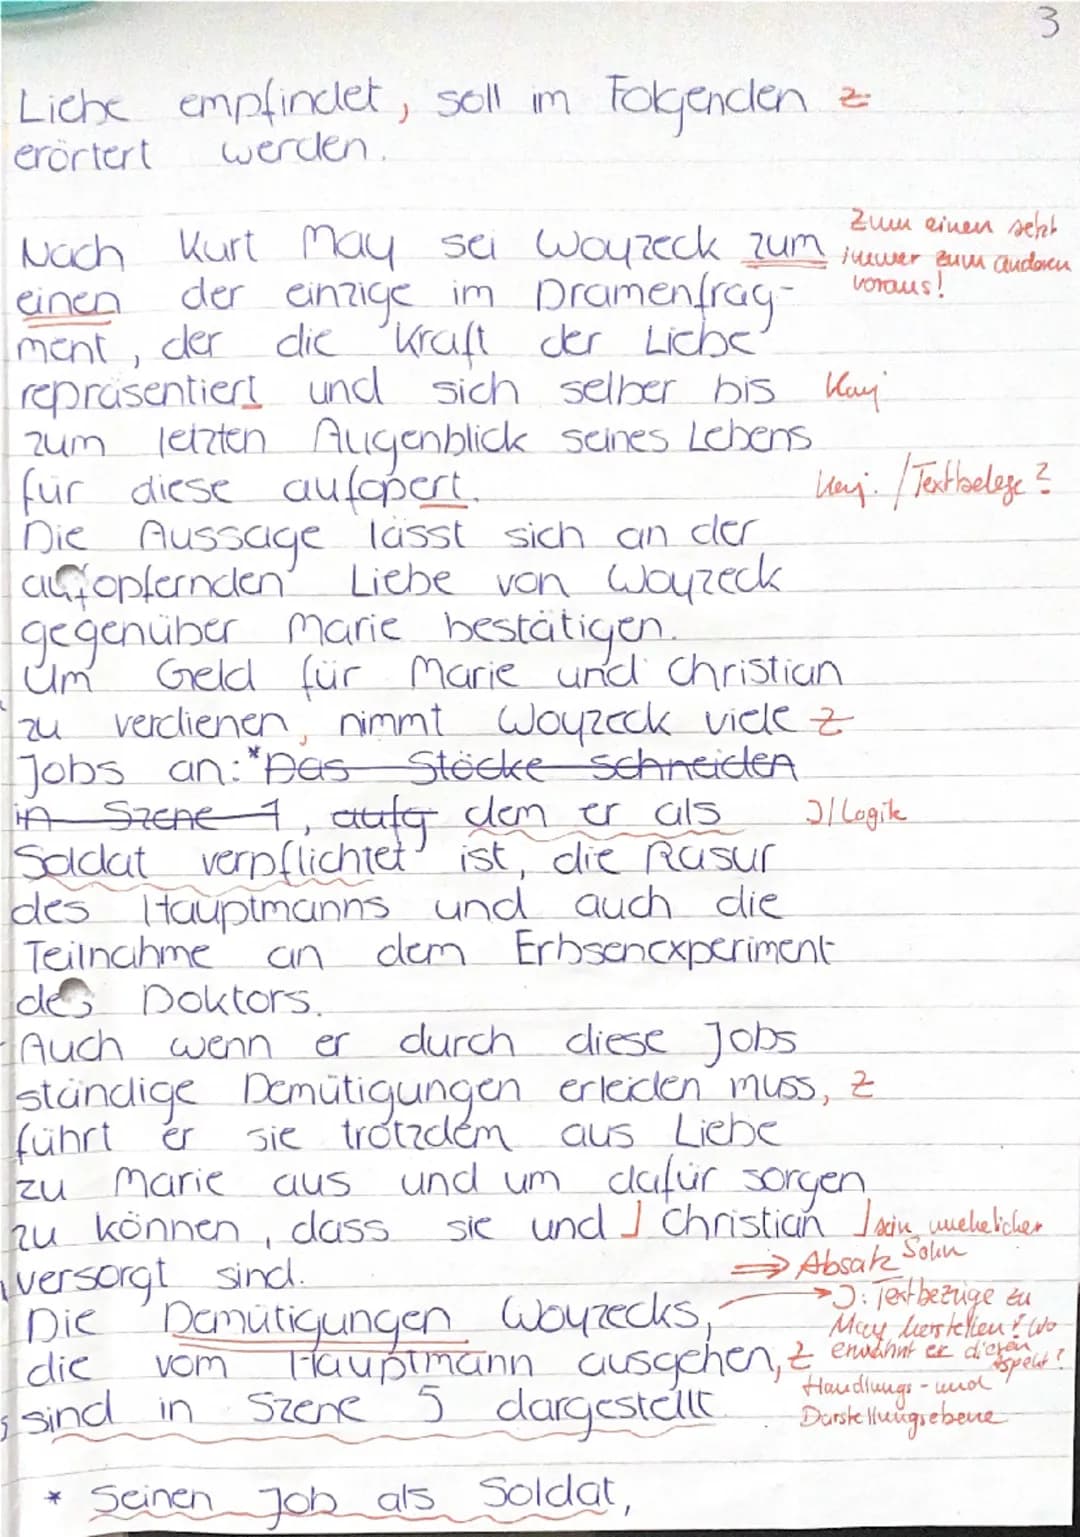 3
Liebe empfindet, soll im Folgenden z
erörtert werden.
Zum einen setzt
immer zum anderen
voraus!
Nach Kurt May sei Woyzeck zum
einen der einzige im Dramenfrag-
ment, der die Kraft der Liebe
repräsentiert und sich selber bis Konj
zum letzten Augenblick seines Lebens
für diese aufopert. Konj. / Textbelege?
Die Aussage lässt sich an der
aufopfernden Liebe von Woyzeck
gegenüber Marie bestätigen.
Um Geld für Marie und Christian
zu verdienen, nimmt Woyzeck viele z
Jobs an:* Das Stöcke schneiden
in Szene 1, aufg dem er als J/Logik
Soldat verpflichtet ist, die Rasur
des Hauptmanns und auch die
Teilnahme an dem Erbsenexperiment
des Doktors.
Auch wenn er durch diese Jobs
ständige Demütigungen erleiden muss, z
führt er sie trotzdem aus Liebe
zu Marie aus und um dafür sorgen
zu können, dass sie und Christian sein unehelicher
Sohn
versorgt sind. => Absatz
Die Demütigungen Woyzecks, J: Textbezüge zu
May herstellen! Wo
die vom Hauptmann ausgehen, z erwähnt er diesen
Aspekt?
sind in Szene 5 dargestellt Handlungs- und
Darstellungsebene
* Seinen Job als Soldat,